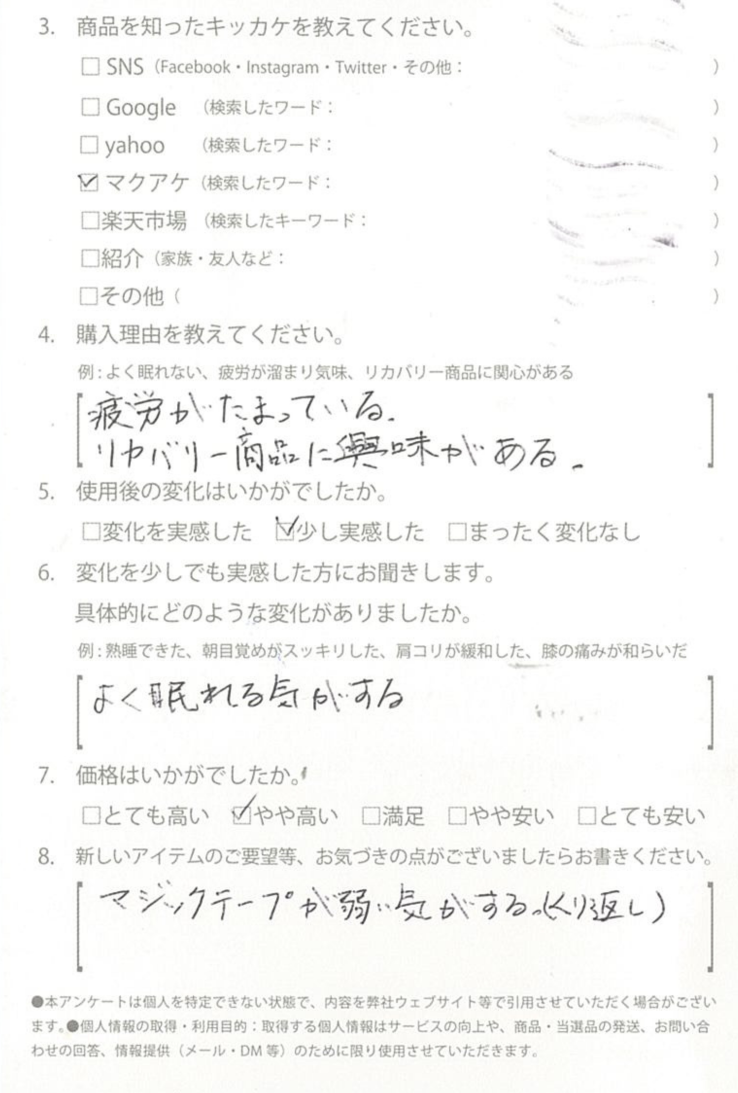 3. 商品を知ったキッカケを教えてください。
□ SNS（Facebook・Instagram・Twitter・その他：　）
□ Google （検索したワード：　）
□ yahoo （検索したワード：　）
☑ マクアケ（検索したワード：　）
□楽天市場 （検索したキーワード：　）
□紹介（家族・友人など：　）
□その他（　）
4. 購入理由を教えてください。
例：よく眠れない、疲労が溜まり気味、リカバリー商品に関心がある
疲労がたまっている。
リカバリー商品に興味がある。
5. 使用後の変化はいかがでしたか。
□変化を実感した ☑少し実感した □まったく変化なし
6. 変化を少しでも実感した方にお聞きします。
具体的にどのような変化がありましたか。
例：熟睡できた、朝目覚めがスッキリした、肩コリが緩和した、膝の痛みが和らいだ
よく眠れる気がする
7. 価格はいかがでしたか。
□とても高い ☑やや高い □満足 □やや安い □とても安い
8. 新しいアイテムのご要望等、お気づきの点がございましたらお書きください。
マジックテープが弱い気がする。(くり返し)
●本アンケートは個人を特定できない状態で、内容を弊社ウェブサイト等で引用させていただく場合がござい
ます。●個人情報の取得・利用目的：取得する個人情報はサービスの向上や、商品・当選品の発送、お問い合
わせの回答、情報提供（メール・DM 等）のために限り使用させていただきます。